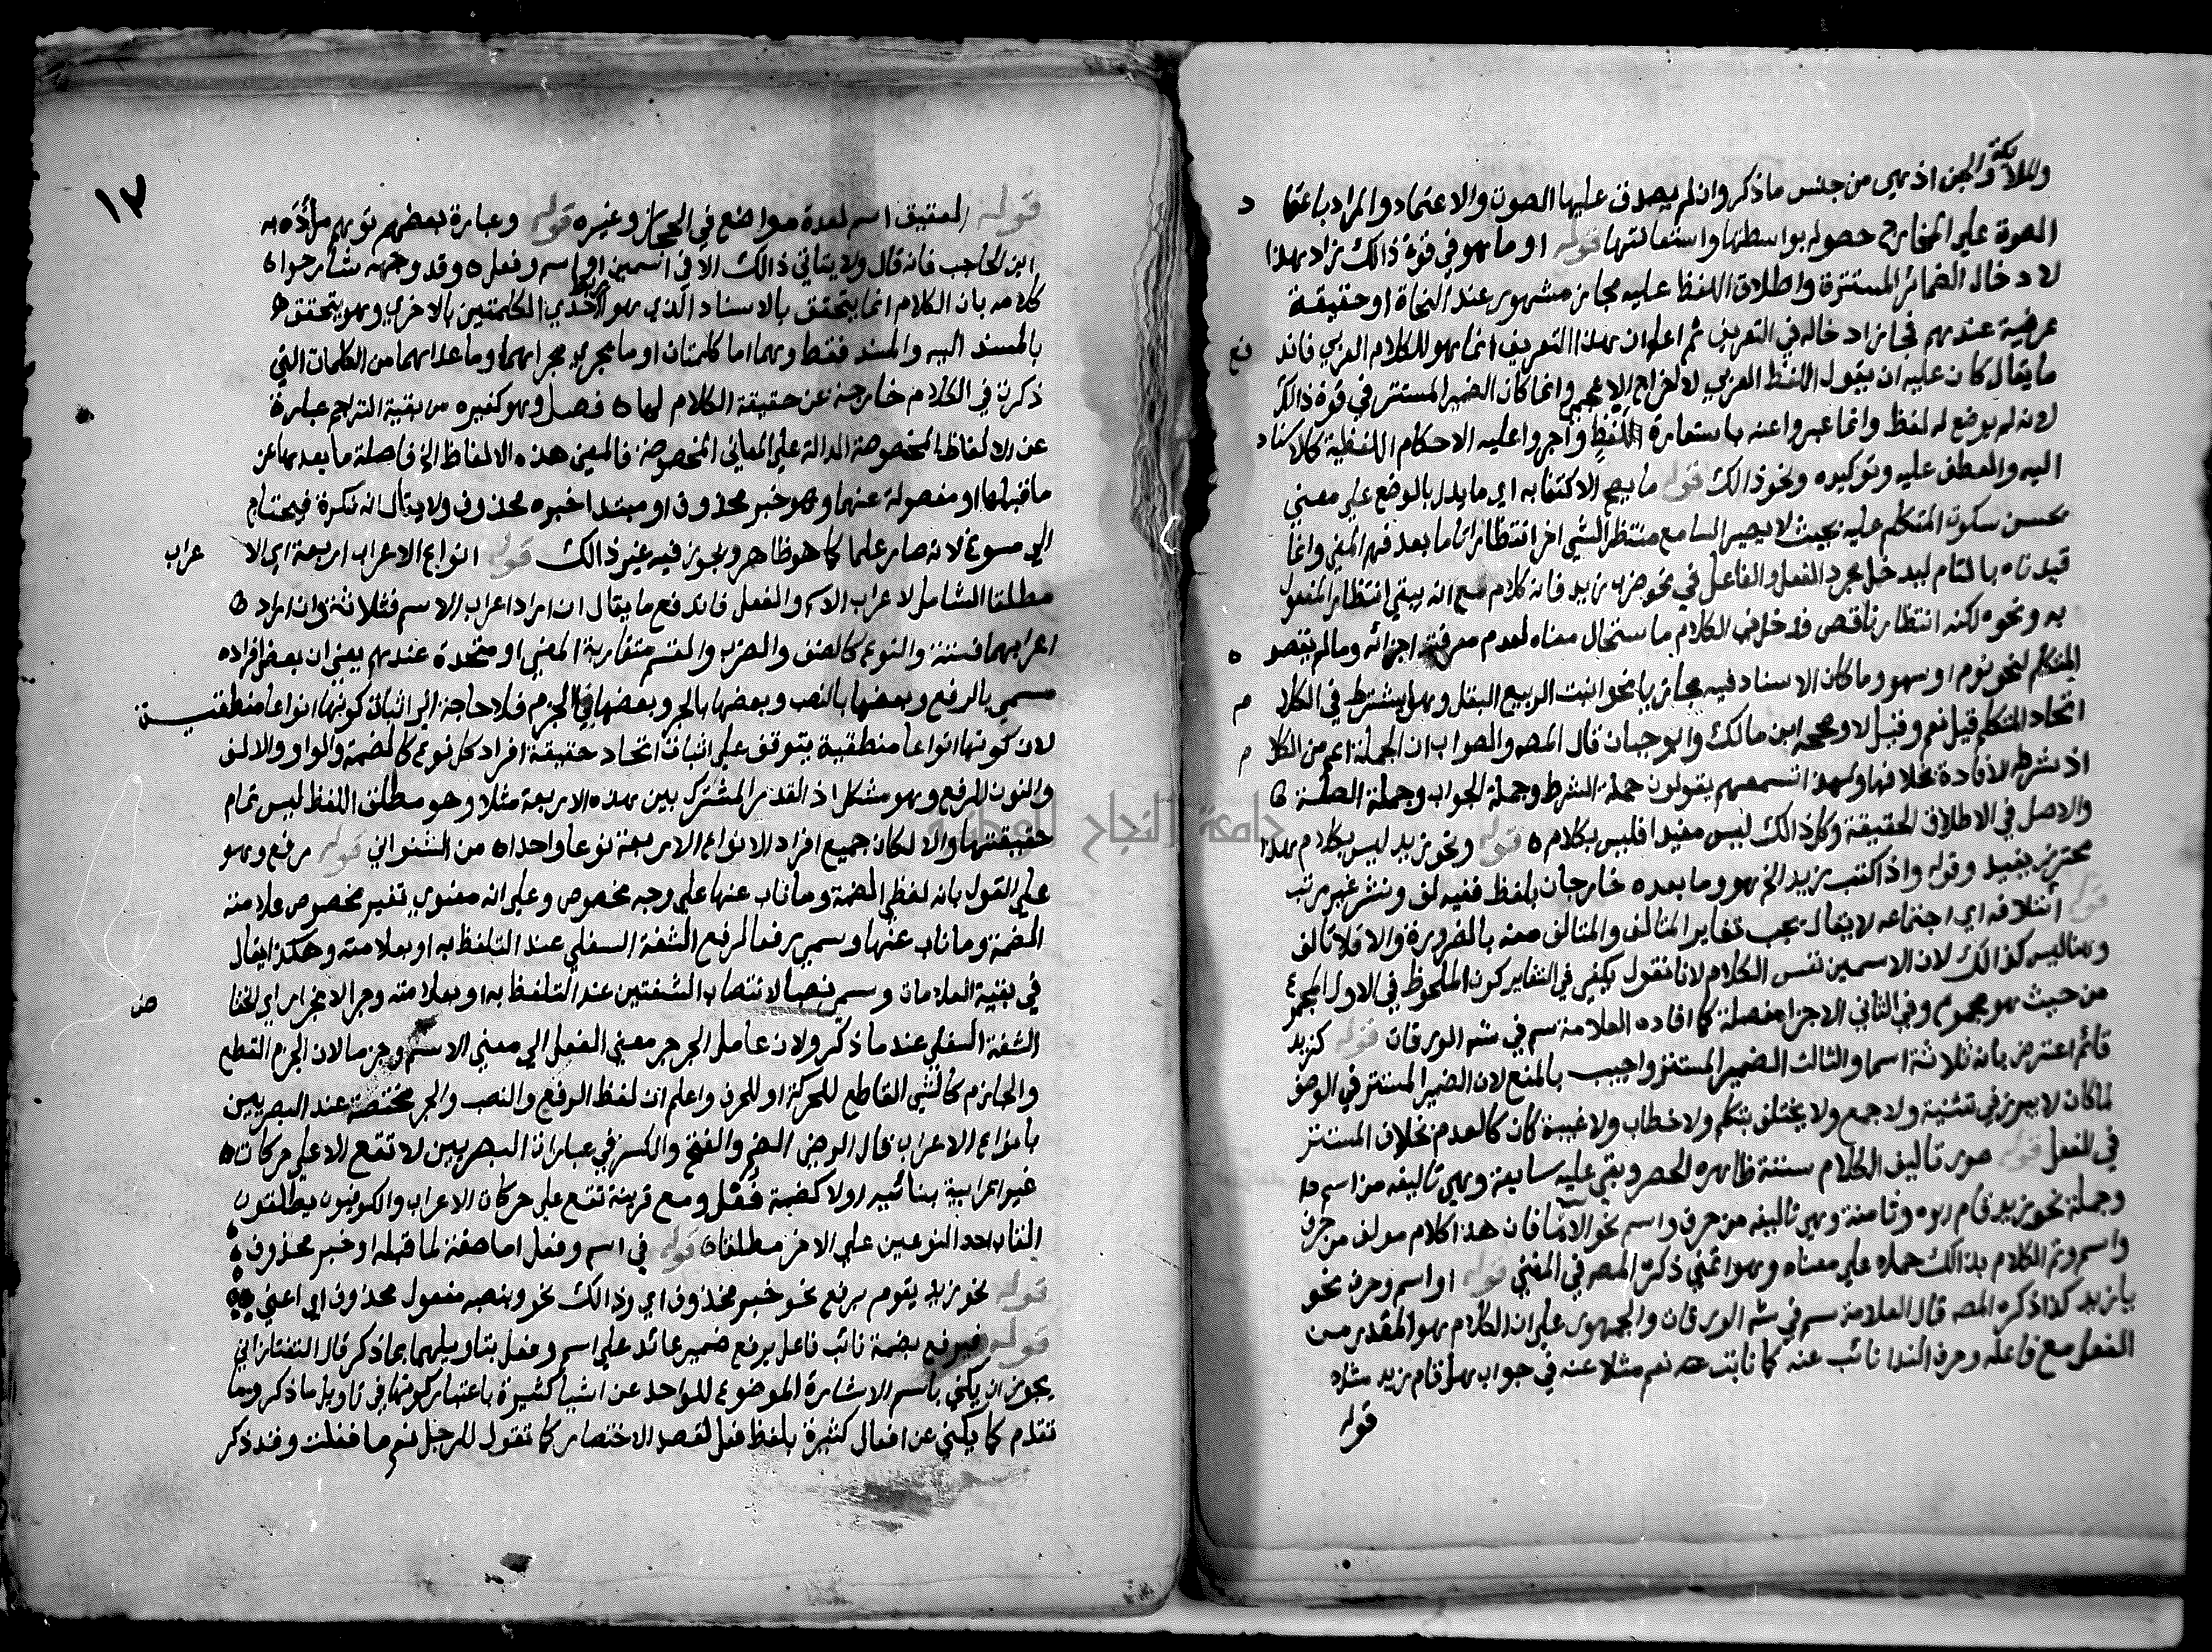 والملائكة والجن اذ هي من جنس ما ذكر وان لم يصدق عليها الصوت والاعتماد والمراد باعتما د
الصوت علي المخارج حصوله بواسطتها واستعانتها قوله او ما هو في قوة ذالك زاد هذا
لادخال الضمائر المستترة واطلاق اللفظ عليه مجاز مشهور عند النحاة او حقيقة
عرفية عندهم فجاز ادخاله في التعريف ثم اعلم ان هذا التعريف انما هو للكلام العربي فاند فع
ما يقال كان عليه ان يقول اللفظ العربي لاخراج الاعجمي وانما كان الضمير المستتر في قوة ذالك
لانه لم يوضع له لفظ وانما عبروا عنه باستعارة اللفظ واجروا عليه الاحكام اللفظية كالاسناد
اليه والعطف عليه وتوكيده ونحو ذالك قوله ما يصح الاكتفا به اي ما يدل بالوضع علي معني
يحسن سكوت المتكلم عليه بحيث لا يصير السامع منتظر الشي اخر انتظارا تاما بعد فهم المعني وانما
قيدناه بالتام ليدخل مجرد الفعل والفاعل في نحو ضرب زيد فانه كلام مع انه يبقي انتظار المفعول
به ونحوه لكنه انتظار ناقص فدخل في الكلام ما ستحال معناه لعدم معرفة اجزائه وما لم يقصد ه
المتكلم لنحو نوم او سهو وما كان الاسناد فيه مجازيا نحو انبت الربيع البقل وهل يشترط في الكلا م
اتحاد المتكلم قيل نعم وقيل لا وصححه ابن مالك وابو حيان قال المصـ والصواب ان الجملة اعم من الكلا م
اذ شرطه الافادة بخلافها ولهذا تسمعهم يقولون جملة الشرط وجملة الجواب وجملة الصلة
والاصل في الاطلاق الحقيقة وكل ذالك ليس مفيدا فليس بكلام قوله ونحو زيد ليس بكلام هذا
محترز بفيد وقوله واذا كتب زيد الخ هو وما بعده خارجان بلفظ ففيه لف ونشر غير مرتب
قوله ائتلافه اي اجتماعه لا يقال يجب تغاير المتالف والمتالف منه بالضرورة والا فلا تالف
وهنا ليس كذالك لان الاسمين نفس الكلام لانا نقول يكفي في التغاير كون الملحوظ في الاول المجموع
من حيث هو مجموع وفي الثاني الاجزا مفصلة كما افاده العلامة سم في شـ الورقات قوله كزيد
قائم اعترض بانه ثلاثة اسما والثالث الضمير المستتر واجيب بالمنع لان الضمير المستتر في الوصف
لما كان لا يبرز في تثنية ولا جمع ولا يختلف بتكلم ولا خطاب ولا غيبة كان كالعدم بخلاف المستتر
في الفعل قوله صور تاليف الكلام ستة ظاهره الحصر وبقي عليه سابعة وهي تاليفه من اسم
وجملة نحو زيد قام ابوه وثامنة وهي تاليفه من حرف واسم نحو الا ما فان هذا كلام مولف من حرف
واسم وتم الكلام بذالك حملا علي معناه وهو اتمني ذكره المصـ في المغني قوله او اسم وحرف نحو
يا زيد كذا ذكره المصـ قال العلامة سم في شـ الورقات والجمهور علي ان الكلام هو المقدر من
الفعل مع فاعله وحرف الندا نائب عنه كما نابت عنه نعم مثلا عنه في جواب هل قام زيد مثلا
قوله
١٢
قوله العقيق اسم لعدة مواضع في الحجاز وغيره قوله وعبارة بعضهم توهم مراده به
ابن الحاجب فانه قال ولا يتاتي ذالك الا في اسمين او اسم وفعل وقد وجهه شارحوا
كلامه بان الكلام انما يتحقق بالاسناد الذي هو ربط احدي الكلمتين بالاخري وهو يتحقق
بالمسند اليه والمسند فقط وهما اما كلمتان او ما يجري مجراهما وما عداهما من الكلمات التي
ذكرت في الكلام خارجة عن حقيقة الكلام لها فصل وهو كغيره من بقية التراجم عبارة
عن الالفاظ المخصوصة الدالة علي المعاني المخصوصة فالمعني هذه الالفاظ الخ فاصلة ما بعدها عن
ما قبلها او مفصولة عنها وهو خبر محذوف او مبتدا خبره محذوف ولا يقال انه نكرة فيحتاج
الي مسوغ لانه صار علما كما هو ظاهر ويجوز فيه غير ذالك قوله انواع الاعراب اربعة اي الا عراب
مطلقا الشامل لاعراب الاسم والفعل فاندفع ما يقال ان اراد اعراب الاسم فثلاثة وان اراد
اعرابهما فستة والنوع كالصنف والضرب والقسم متقاربة المعني او متحدة عندهم يعني ان بعض افراده
مسمي بالرفع وبعضها بالنصب وبعضها بالجر وبعضها في الجزم فلا حاجة الي اثبات كونها انواعا منطقية
لان كونها انواعا منطقية يتوقف علي اثبات اتحاد حقيقة افراد كل نوع كالضمة والواو والالف
والنون للرفع وهو مشكل اذ القدر المشترك بين هذه الاربعة مثلا وهو مطلق اللفظ ليس تمام
حقيقتها والا لكان جميع افراد الانواع الاربعة نوعا واحدا ه من الشنواني قوله رفع وهو
علي القول بانه لفظي الضمة وما ناب عنها علي وجه مخصوص وعلي انه معنوي تغير مخصوص علامته
الضمة وما ناب عنها وسمي رفعا لرفع الشفة السفلي عند التلفظ به او بعلامته وهكذا يقال
في بقية العلامات وسمي نصبا لانتصاب الشفتين عند التلفظ به او بعلامته وجرا لانجرار اي انخفا ض
الشفة السفلي عند ما ذكر ولان عامل الجر جر معني الفعل الي معني الاسم وجزما لان الجزم القطع
والجازم كالشي القاطع للحركة او للحرف واعلم ان لفظ الرفع والنصب والجر مختصة عند البصريين
بانواع الاعراب قال الرضي الضم والفتح والكسر في عبارات البصريين لا تقع الا علي حركات
غير اعرابية بنائية اولا كضمة قفل ومع قرينة تقع علي حركات الاعراب والكوفيون يطلقون
القاب احد النوعين علي الاخر مطلقا قوله في اسم وفعل اما صفة لما قبله او خبر محذوف
قوله نحو زيد يقوم برفع نحو خبر محذوف اي وذالك نحو وبنصبه مفعول محذوف اي اعني
قوله فيرفع بضمة نائب فاعل يرفع ضمير عائد علي اسم وفعل بتاويلهما بما ذكر قال التفتازاني
يجوز ان يكني باسم الاشارة الموضوع للواحد عن اشيا كثيرة باعتبار كونها في تاويل ما ذكر وما
تقدم كما يكني عن افعال كثيرة بلفظ فعل لقصد الاختصار كما تقول للرجل نعم ما فعلت وقد ذكر
جامعة النجاح الوطنية